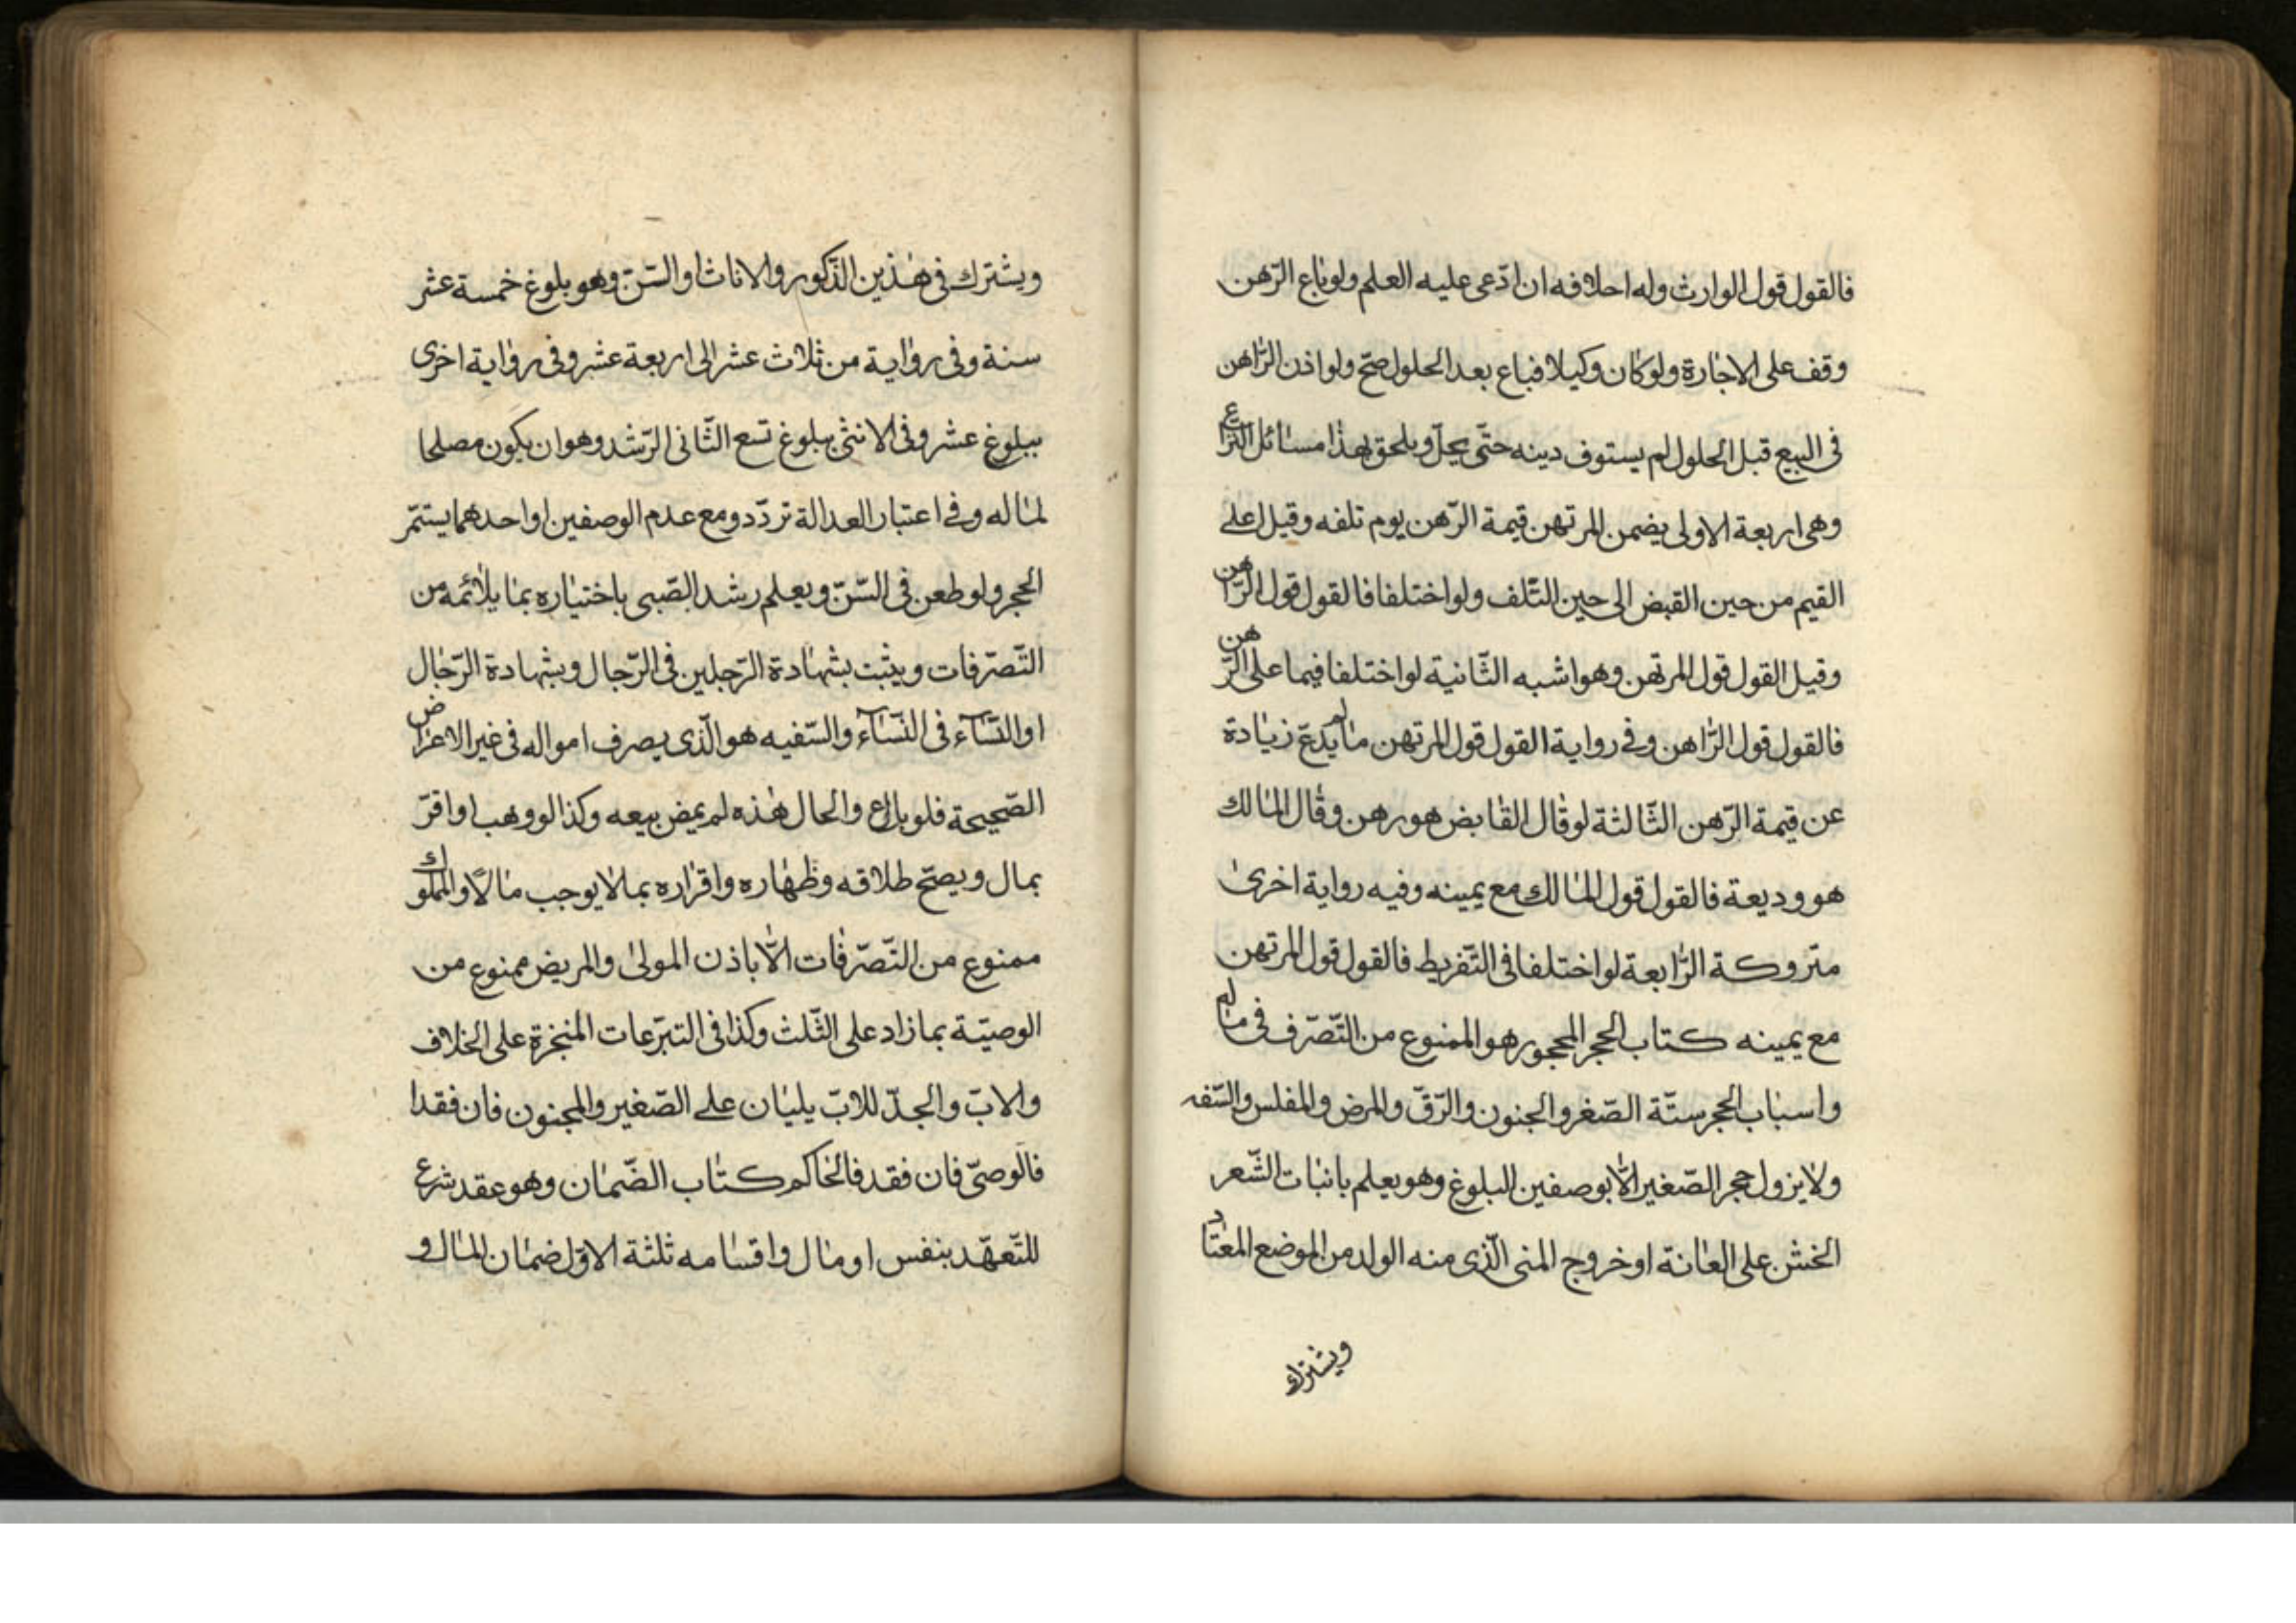 فالقول قول الوارث وله احلافه ان ادّعى عليه العلم ولو باع الرّهن
وقف على الاجازة ولو كان وكيلا فباع بعد الحلول صحّ ولو اذن الرّاهن
فى البيع قبل الحلول لم يستوف دينه حتّى يحلّ ويلحق بهذا مسائل النّزاع
وهى اربعة الاولى يضمن المرتهن قيمة الرّهن يوم تلفه وقيل اعلى
القيم من حين القبض الى حين التّلف ولو اختلفا فالقول قول الرّاهن
وقيل القول قول المرتهن وهو اشبه الثّانية لو اختلفا فيما على الرّهن
فالقول قول الرّاهن وفى رواية القول قول المرتهن ما لم يدّع زيادة
عن قيمة الرّهن الثّالثة لو قال القابض هو رهن وقال المالك
هو وديعة فالقول قول المالك مع يمينه وفيه رواية اخرى
متروكة الرّابعة لو اختلفا فى التّفريط فالقول قول المرتهن
مع يمينه كتاب الحجر المحجور هو الممنوع من التّصرّف فى ماله
واسباب الحجر ستّة الصّغر والجنون والرّقّ والمرض والمفلس والسّفه
ولا يزول حجر الصّغير الّا بوصفين البلوغ وهو يعلم بانبات الشّعر
الخشن على العانة او خروج المنى الّذى منه الولد من الموضع المعتاد
ويشترك
ويشترك فى هذين الذّكور والاناث او السّنّ وهو بلوغ خمسة عشر
سنة وفى رواية من ثلاث عشر الى اربعة عشر وفى رواية اخرى
ببلوغ عشر وفى الانثى ببلوغ تسع الثّانى الرّشد وهو ان يكون مصلحا
لماله وفى اعتبار العدالة تردّد ومع عدم الوصفين او احدهما يستمّر
الحجر ولو طعن فى السّنّ ويعلم رشد الصّبى باختياره بما يلائمه من
التّصرّفات ويثبت بشهادة الرّجلين فى الرّجال وبشهادة الرّجال
او النّسآء فى النّسآء والسّفيه هو الّذى يصرف امواله فى غير الاغراض
الصّحيحة فلو باع والحال هذه لم يمض بيعه وكذا لو وهب او اقرّ
بمال ويصحّ طلاقه وظهاره واقراره بما لا يوجب مالًا والمملوك
ممنوع من التّصرّفات الّا باذن المولى والمريض ممنوع من
الوصيّة بما زاد على الثّلث وكذا فى التبرّعات المنجزة على الخلاف
والابّ والجدّ للابّ يليان على الصّغير والمجنون فان فقدا
فالوصىّ فان فقد فالحاكم كتاب الضّمان وهو عقد شرع
للتّعهّد بنفس او مال واقسامه ثلثة الاوّل ضمان المال و